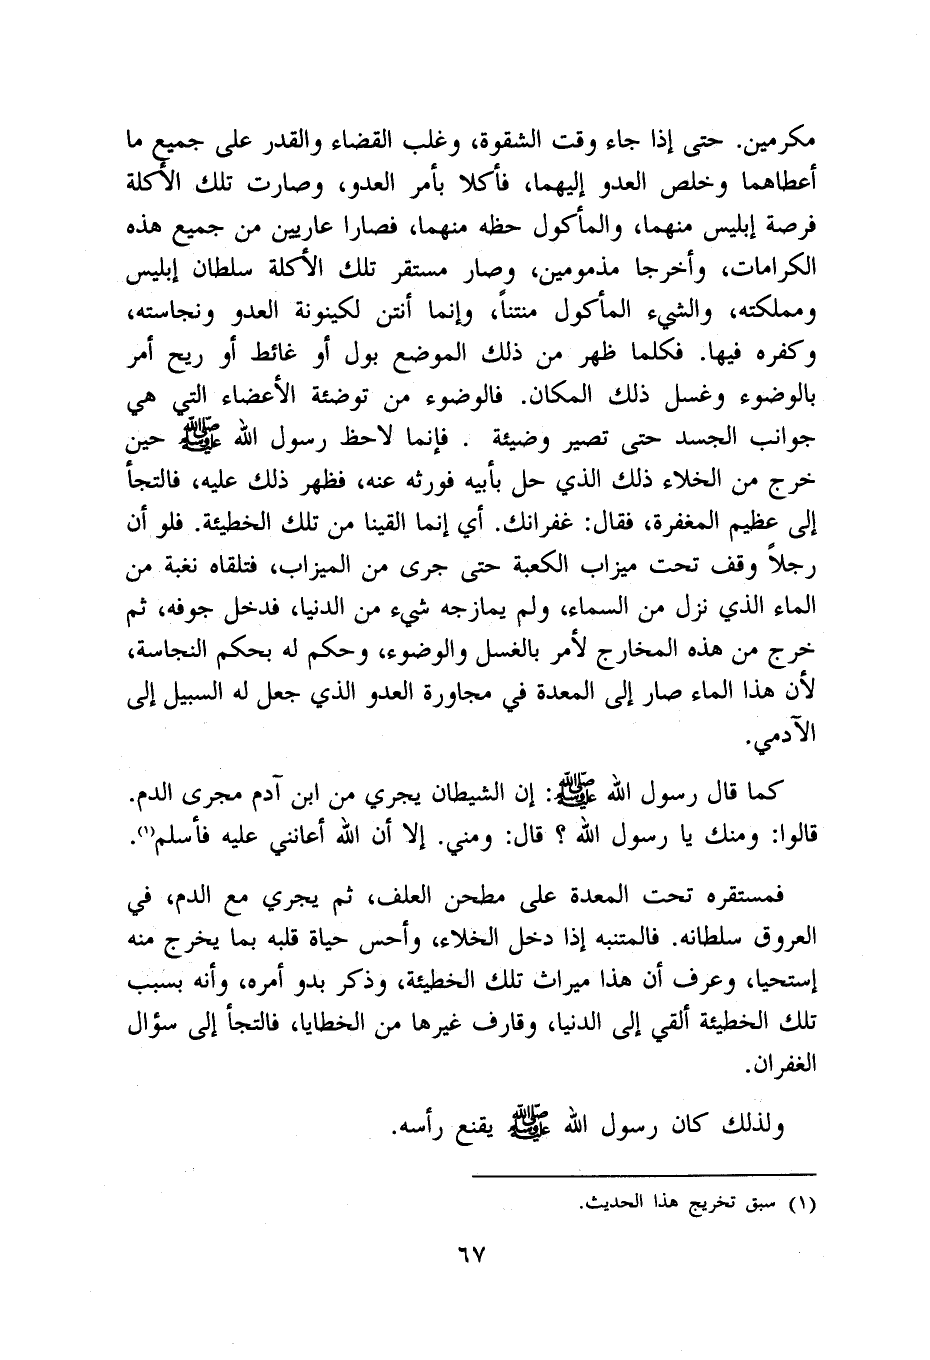 مكرمين. حتى إذا جاء وقت الشقوة، وغلب القضاء والقدر على جميع ما
أعطاهما وخلص العدو إليهما، فأكلا بأمر العدو، وصارت تلك الأكلة
فرصة إبليس منهما، والمأكول حظه منهما، فصارا عاريين من جميع هذه
الكرامات، وأخرجا مذمومين، وصار مستقر تلك الأكلة سلطان إبليس
ومملكته، والشيء المأكول منتناً، وإنما أنتن لكينونة العدو ونجاسته،
وكفره فيها. فكلما ظهر من ذلك الموضع بول أو غائط أو ريح أمر
بالوضوء وغسل ذلك المكان. فالوضوء من توضئة الأعضاء التي هي
جوانب الجسد حتى تصير وضيئة . فإنما لاحظ رسول الله ﷺ حين
خرج من الخلاء ذلك الذي حل بأبيه فورثه عنه، فظهر ذلك عليه، فالتجأ
إلى عظيم المغفرة، فقال: غفرانك. أي إنما القينا من تلك الخطيئة. فلو أن
رجلاً وقف تحت ميزاب الكعبة حتى جرى من الميزاب، فتلقاه نغبة من
الماء الذي نزل من السماء، ولم يمازجه شيء من الدنيا، فدخل جوفه، ثم
خرج من هذه المخارج لأمر بالغسل والوضوء، وحكم له بحكم النجاسة،
لأن هذا الماء صار إلى المعدة في مجاورة العدو الذي جعل له السبيل إلى
الآدمي.
كما قال رسول الله ﷺ: إن الشيطان يجري من ابن آدم مجرى الدم.
قالوا: ومنك يا رسول الله ؟ قال: ومني. إلا أن الله أعانني عليه فأسلم(١).
فمستقره تحت المعدة على مطحن العلف، ثم يجري مع الدم، في
العروق سلطانه. فالمتنبه إذا دخل الخلاء، وأحس حياة قلبه بما يخرج منه
إستحيا، وعرف أن هذا ميراث تلك الخطيئة، وذكر بدو أمره، وأنه بسبب
تلك الخطيئة ألقي إلى الدنيا، وقارف غيرها من الخطايا، فالتجأ إلى سؤال
الغفران.
ولذلك كان رسول الله ﷺ يقنع رأسه.
(١) سبق تخريج هذا الحديث.
٦٧